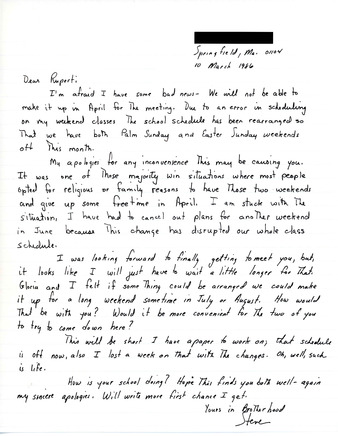 Springfield, Ma. 01104
10 March 1986
Dear Rupert:
I'm afraid I have some bad news - We will not be able to
make it up in April for the meeting. Due to an error in scheduling
on my weekend classes the school schedule has been rearranged so
that we have both Palm Sunday and Easter Sunday weekends
off this month.
My apologies for any inconvenience this may be causing you.
It was one of those majority win situations where most people
opted for religious or family reasons to have those two weekends
and give up some freetime in April. I am stuck with the
situation. I have had to cancel out plans for another weekend
in June because this change has disrupted our whole class
schedule.
I was looking forward to finally getting to meet you, but,
it looks like I will just have to wait a little longer for that.
Gloria and I felt if something could be arranged we could make
it up for a long weekend sometime in July or August. How would
that be with you? Would it be more convenient for the two of you
to try to come down here?
This will be short I have a paper to work on, that schedule
is off now, also I lost a week on that with the changes. Oh, well, such
is life.
How is your school doing? Hope this finds you both well - again
my sincere apologies. Will write more first chance I get.
Yours in Brotherhood
Steve